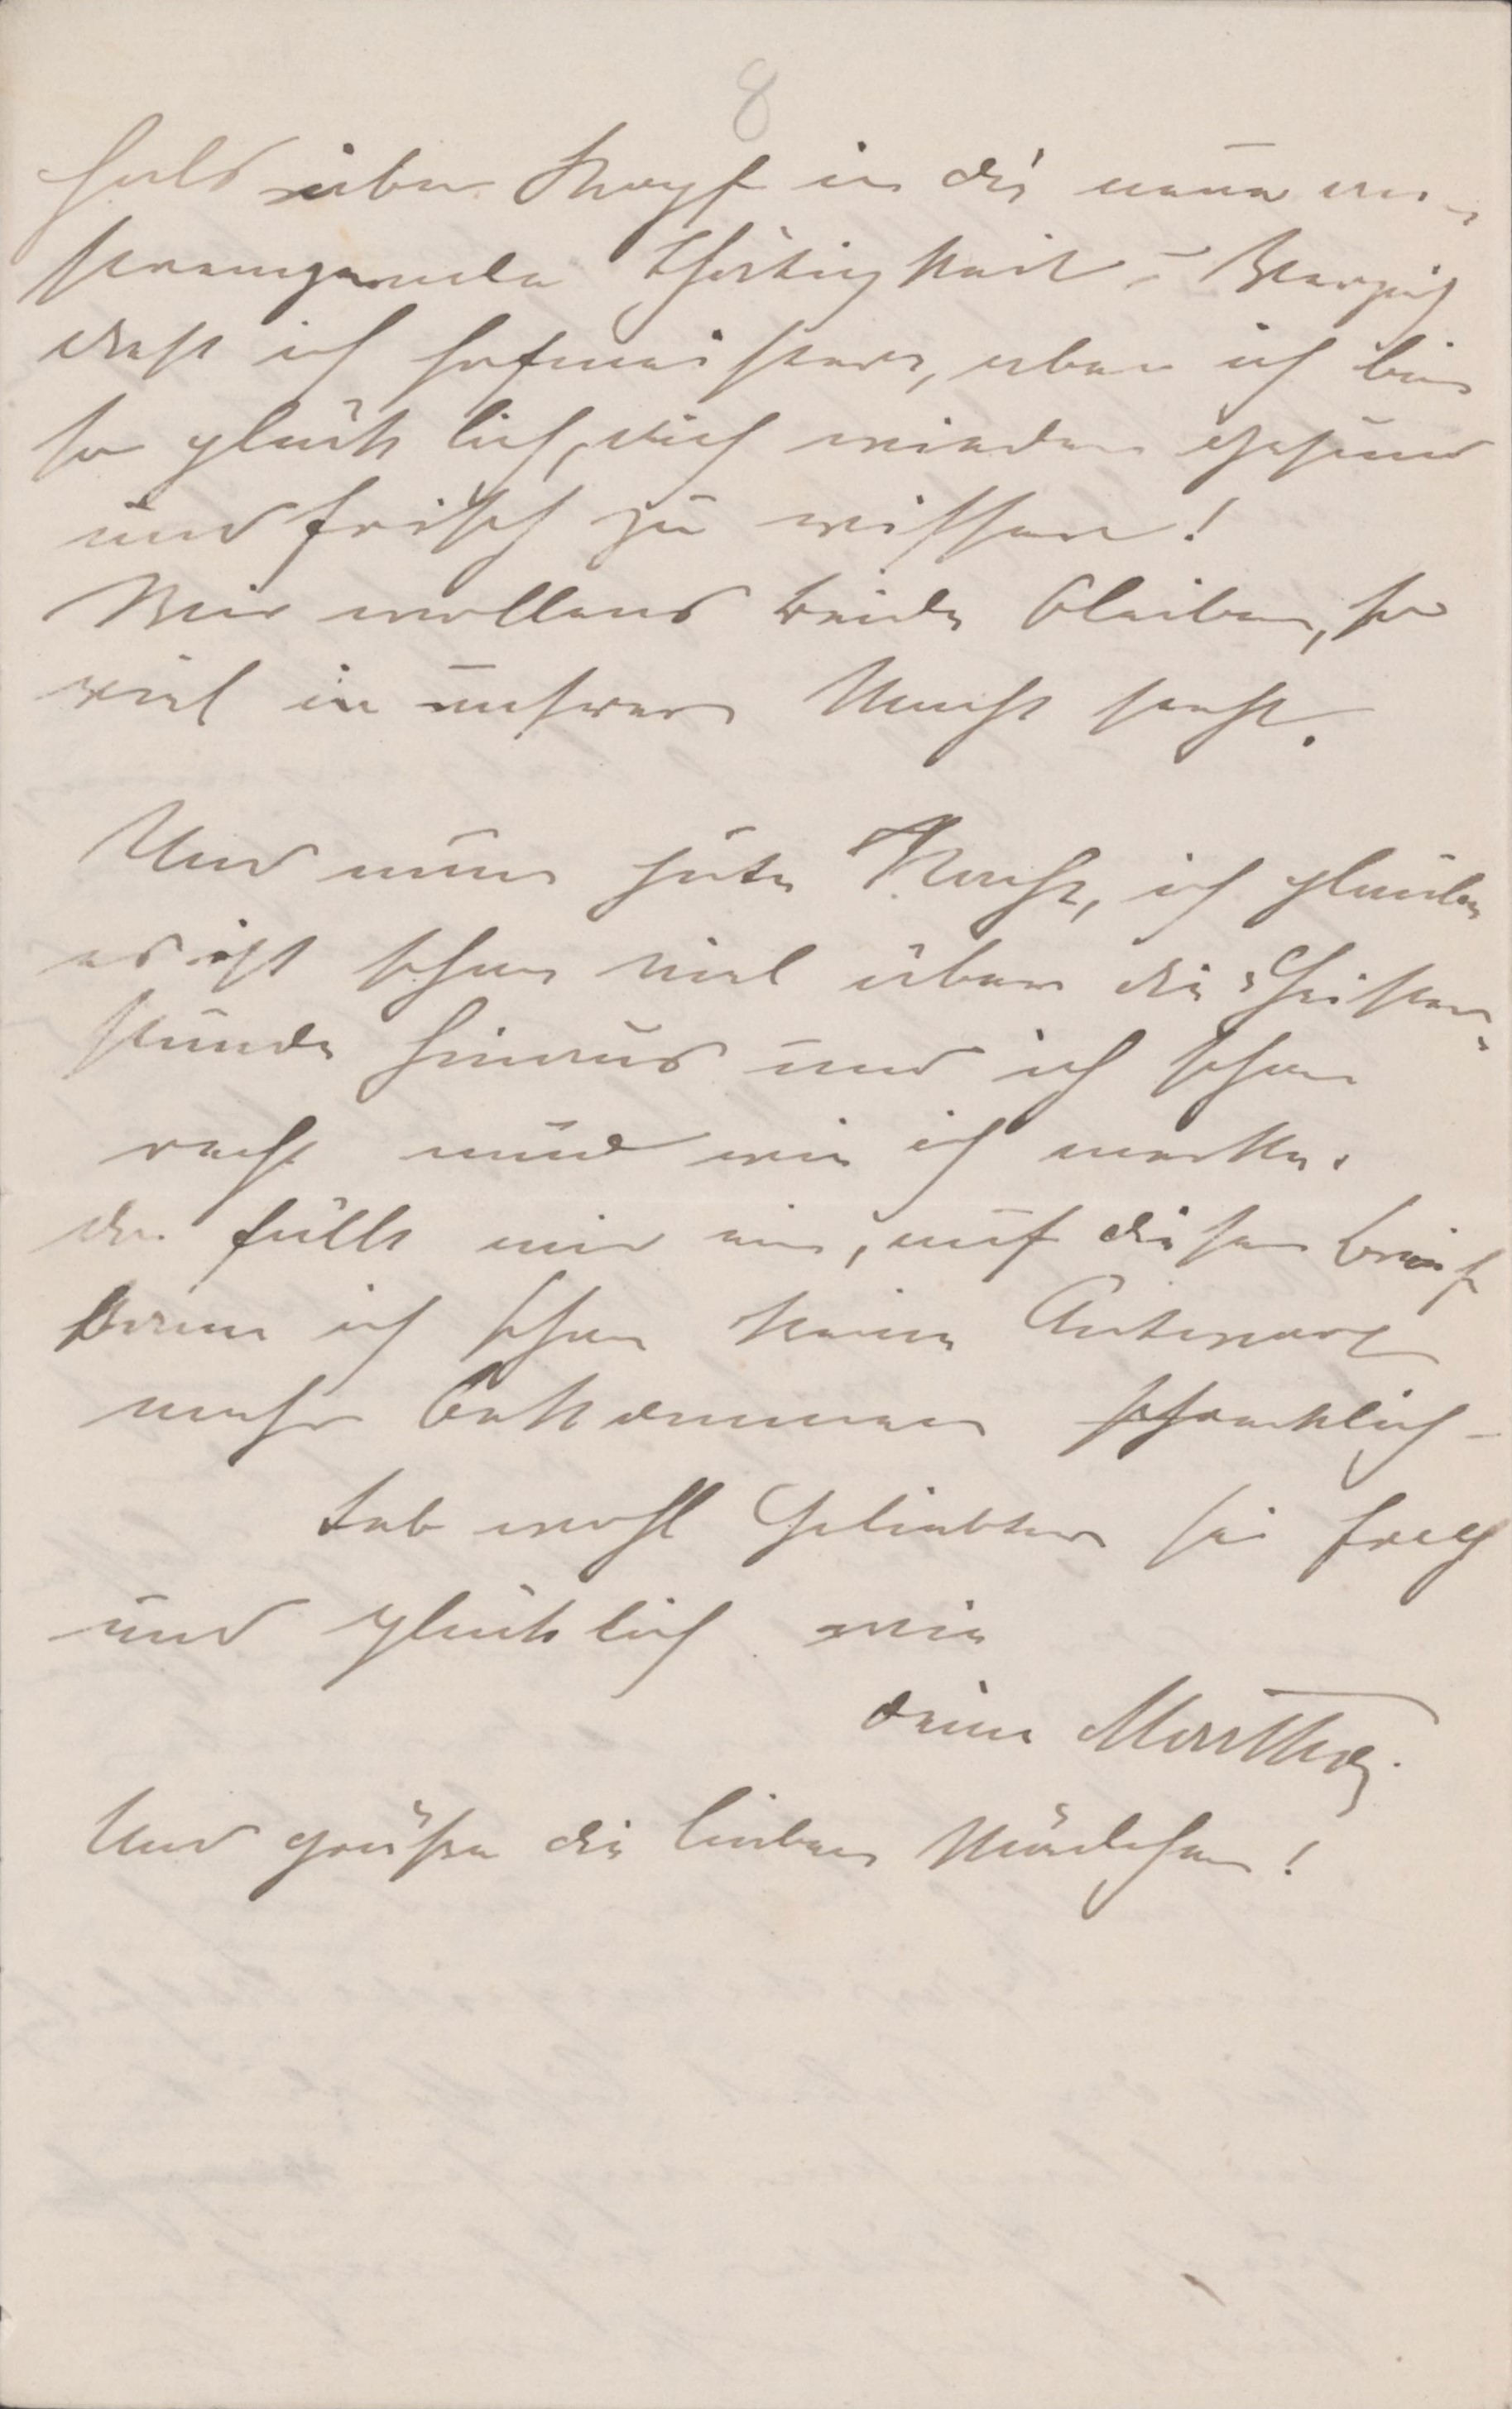 8
Hals über Kopf in die neue an-
strengende Thätigkeit – Verzeih
daß ich hofmeistere, aber ich bin
so glücklich, dich wieder gesund
und frisch zu wissen!
Wir wollens beide bleiben, so
viel in unsrer Macht steht.
Und nun gute Nacht, ich glaube
es ist schon viel über die Geister-
stunde hinaus und ich schon
recht müd wie ich merke.
da fällt mir ein, auf diesen Brief
kann ich schon keine Antwort
mehr bekommen schrecklich –
Leb wohl Geliebter sei frey
und glücklich wie
deine
Und grüße die lieben Mädchen!